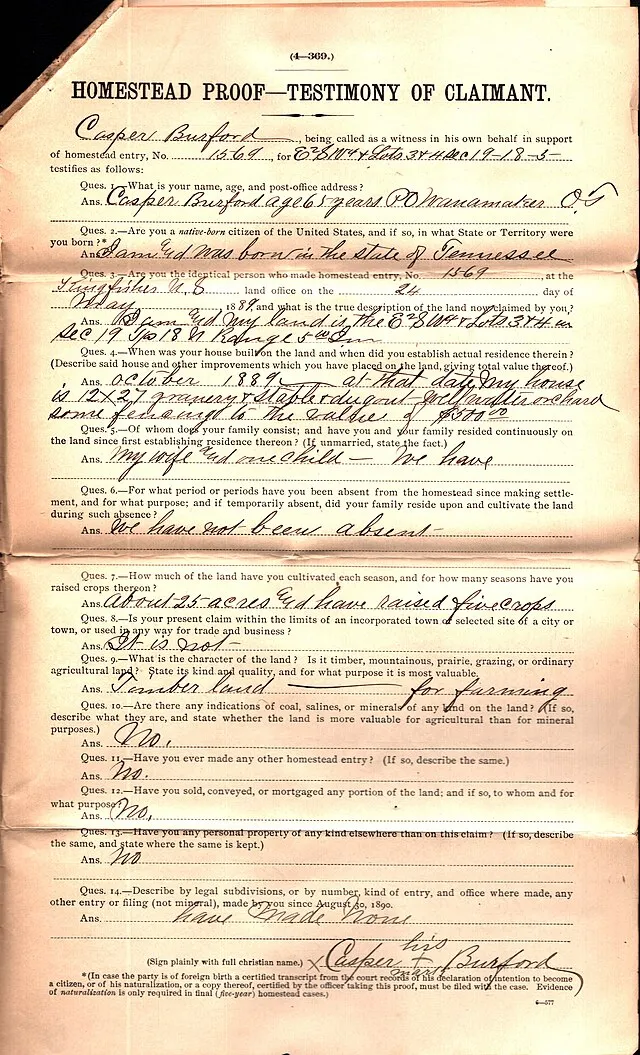 (4—369.)
HOMESTEAD PROOF—TESTIMONY OF CLAIMANT.
Casper Burford, being called as a witness in his own behalf in support
of homestead entry, No. 1569, for E2 SW4 & Lots 3 & 4 Sec 19-18-5-
testifies as follows:
Ques. 1.—What is your name, age, and post-office address?
Ans. Casper Burford age 65 years PO Wanamaker O.T
Ques. 2.—Are you a native-born citizen of the United States, and if so, in what State or Territory were
you born?*
Ans. I am and was born in the state of Tennessee
Ques. 3.—Are you the identical person who made homestead entry, No. 1569, at the
Kingfisher land office on the 24 day of
May 1889, and what is the true description of the land now claimed by you?
Ans. I am and my land is the E2 SW4 & Lots 3 & 4 in
Sec 19 Tp 18 N Range 5 W I m
Ques. 4.—When was your house built on the land and when did you establish actual residence therein?
(Describe said house and other improvements which you have placed on the land, giving total value thereof.)
Ans. October 1889 — at that date My house
is 12X27 granery & stable dugout well water orchard
some fencing to the value of $500.00
Ques. 5.—Of whom does your family consist; and have you and your family resided continuously on
the land since first establishing residence thereon? (If unmarried, state the fact.)
Ans. My wife and one child — We have
Ques. 6.—For what period or periods have you been absent from the homestead since making settle-
ment, and for what purpose; and if temporarily absent, did your family reside upon and cultivate the land
during such absence?
Ans. We have not been absent
Ques. 7.—How much of the land have you cultivated each season, and for how many seasons have you
raised crops thereon?
Ans. About 25 acres and have raised five crops
Ques. 8.—Is your present claim within the limits of an incorporated town or selected site of a city or
town, or used in any way for trade and business?
Ans. It is not
Ques. 9.—What is the character of the land? Is it timber, mountainous, prairie, grazing, or ordinary
agricultural land? State its kind and quality, and for what purpose it is most valuable.
Ans. Timber land — for farming
Ques. 10.—Are there any indications of coal, salines, or minerals of any kind on the land? (If so,
describe what they are, and state whether the land is more valuable for agricultural than for mineral
purposes.)
Ans. No.
Ques. 11.—Have you ever made any other homestead entry? (If so, describe the same.)
Ans. No.
Ques. 12.—Have you sold, conveyed, or mortgaged any portion of the land; and if so, to whom and for
what purpose?
Ans. No,
Ques. 13.—Have you any personal property of any kind elsewhere than on this claim? (If so, describe
the same, and state where the same is kept.)
Ans. No
Ques. 14.—Describe by legal subdivisions, or by number, kind of entry, and office where made, any
other entry or filing (not mineral), made by you since August 30, 1890.
Ans. have made none
his
(Sign plainly with full christian name.) X Casper + Burford
mark
*(In case the party is of foreign birth a certified transcript from the court records of his declaration of intention to become
a citizen, or of his naturalization, or a copy thereof, certified by the officer taking this proof, must be filed with the case. Evidence
of naturalization is only required in final (five-year) homestead cases.)
6—577